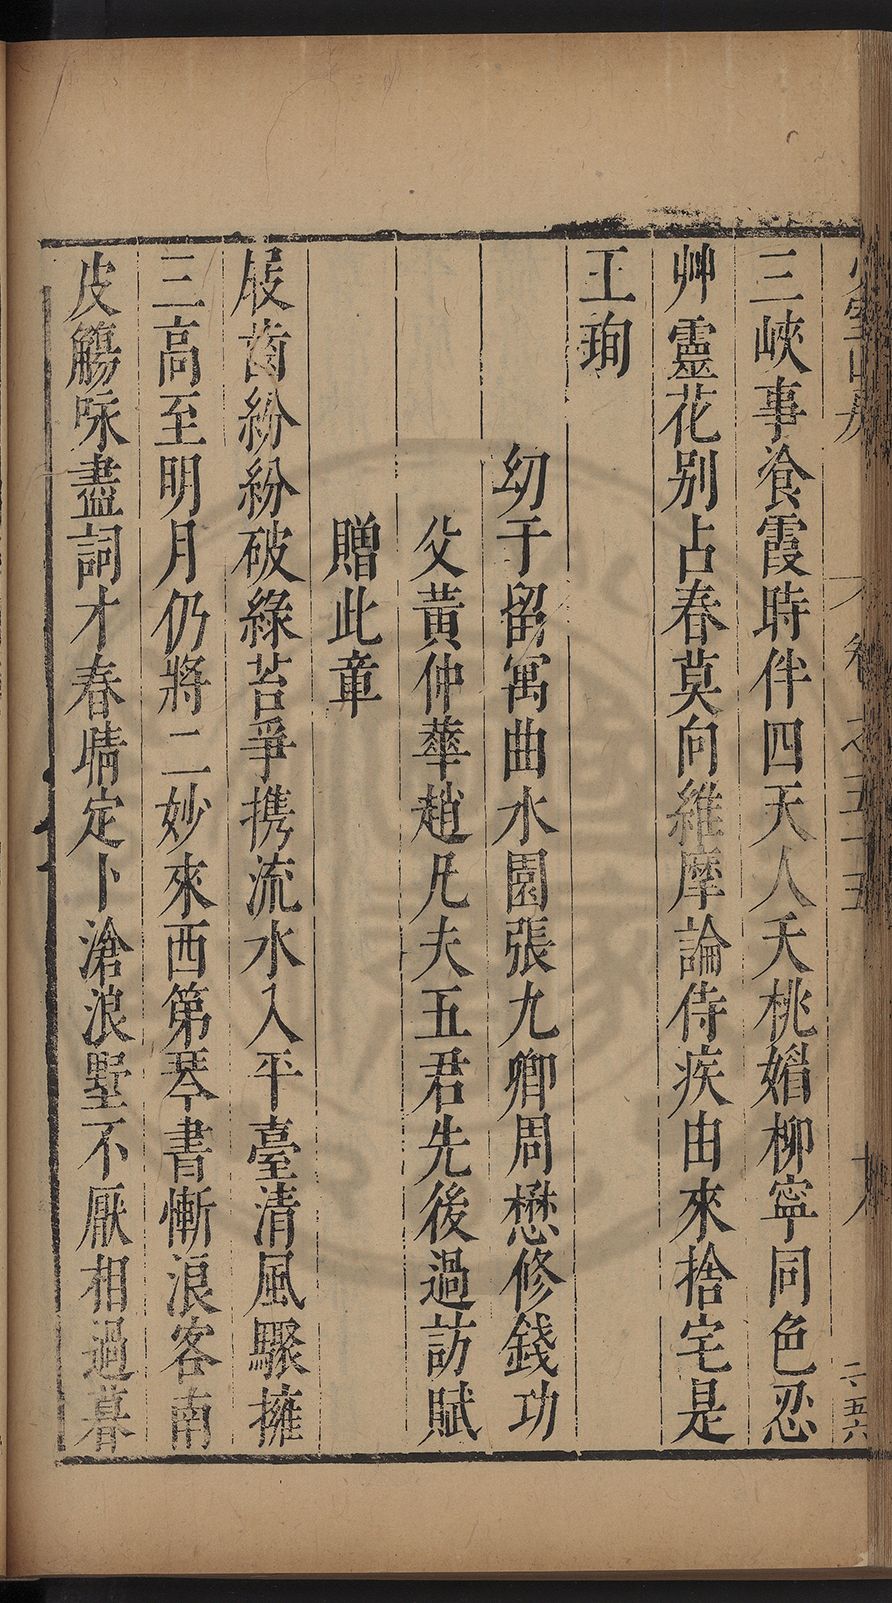 少室山房
卷之五十五
十八
二、五六
三峽事飡霞時伴四天人夭桃媚柳寧同色忍
艸靈花别占春莫向維摩論侍疾由來捨宅是
王珣
幼于留寓曲水園張九卿周懋修錢功
父黃仲華趙凡夫五君先後過訪賦
贈此章
屐齒紛紛破綠苔爭携流水入平臺清風驟擁
三高至明月仍將二妙來西第琴書慚浪客南
皮觴咏盡詞才春晴定卜滄浪墅不厭相過暮